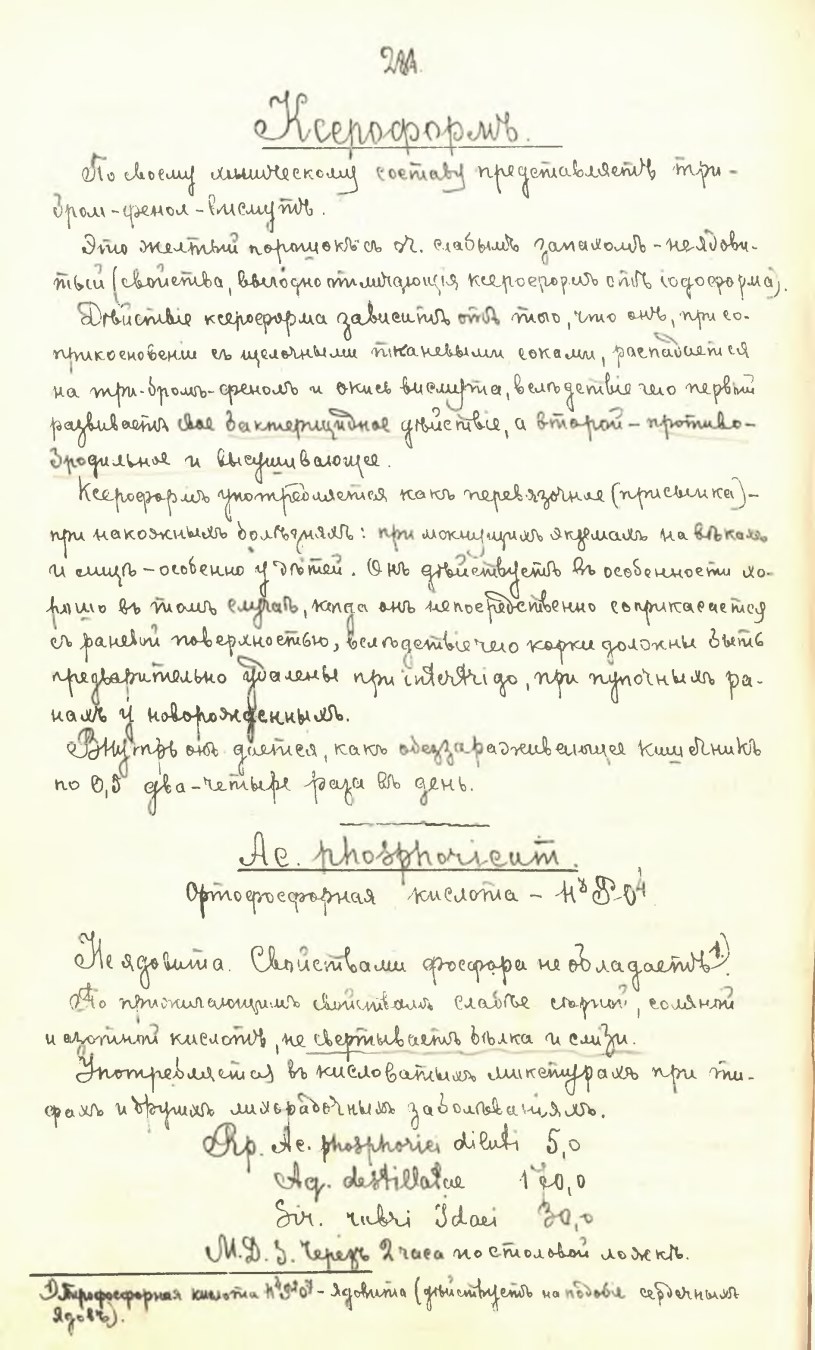 Ксероформъ.
По своему химическому составу представляетъ три-
бром-фенол-висмутъ.
Это желтый порошокъ съ оч. слабымъ запахомъ - неядови-
тый (свойства, выгодно отличающія ксероформъ отъ іодоформа).
Дѣйствіе ксероформа зависитъ отъ того, что онъ, при со-
прикосновеніи съ щелочными тканевыми соками, распадается
на три-бромъ-фенолъ и окись висмута, вслѣдствіе чего первый
развиваетъ свое бактерицидное дѣйствіе, а второй - противо-
бродильное и высушивающее.
Ксероформъ употребляется какъ перевязочное (присыпка) -
при накожныхъ болѣзняхъ: при мокнущихъ экземахъ на вѣкахъ
и лицѣ - особенно у дѣтей. Онъ дѣйствуетъ въ особенности хо-
рошо въ томъ случаѣ, когда онъ непосредственно соприкасается
съ раневой поверхностью, вслѣдствіе чего корки должны быть
предварительно удалены при intertrigo, при пупочныхъ ра-
нахъ у новорожденныхъ.
Внутрь онъ дается, какъ обеззараживающее кишечникъ
по 0,5 два-четыре раза въ день.
Ac. phosphoricum.
Ортофосфорная кислота - H³PO⁴
Не ядовита. Свойствами фосфора не обладаетъ¹).
По прижигающимъ свойствамъ слабѣе сѣрной, соляной
и азотной кислотъ, не свертываетъ бѣлка и слизи.
Употребляется въ кисловатыхъ микстурахъ при ти-
фахъ и другихъ лихорадочныхъ заболѣваніяхъ.
Rp. Ac. phosphorici diluti 5,0
Aq. destillatae
Sir. rubri Idaei 30,0
M.D.S. Черезъ 2 часа по столовой ложкѣ.
¹) Пирофосфорная кислота H⁴P²O⁷ - ядовита (дѣйствуетъ на подобіе сердечныхъ
ядовъ).